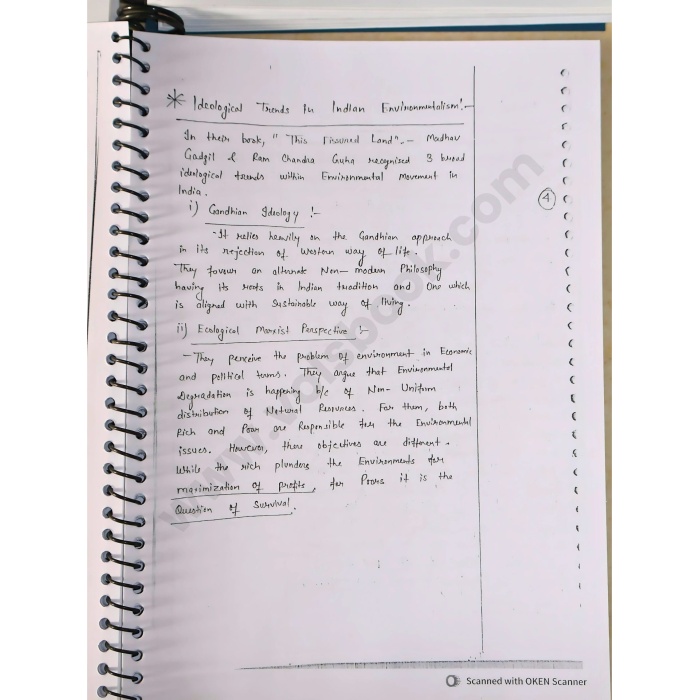 * Ideological Trends in Indian Environmentalism!-
In their book, "This Fissured Land".- Madhav
Gadgil & Ram Chandra Guha recognised 3 broad
ideological trends within Environmental Movement in
India.
④
i) Gandhian Ideology !-
-It relies heavily on the Gandhian approach
in its rejection of western way of life.
They favour an alternate Non-modern Philosophy
having its roots in Indian tradition and One which
is aligned with sustainable way of living.
ii) Ecological Marxist Perspective :-
- They perceive the problem of environment in Economic
and political terms. They argue that Environmental
Degradation is happening b/c of Non-Uniform
distribution of Natural Resources. For them, both
Rich and Poor are Responsible for the Environmental
issues. However, there objectives are different.
While the rich plunders the Environments for
maximization of profits, for Poors it is the
Question of Survival.
Scanned with OKEN Scanner